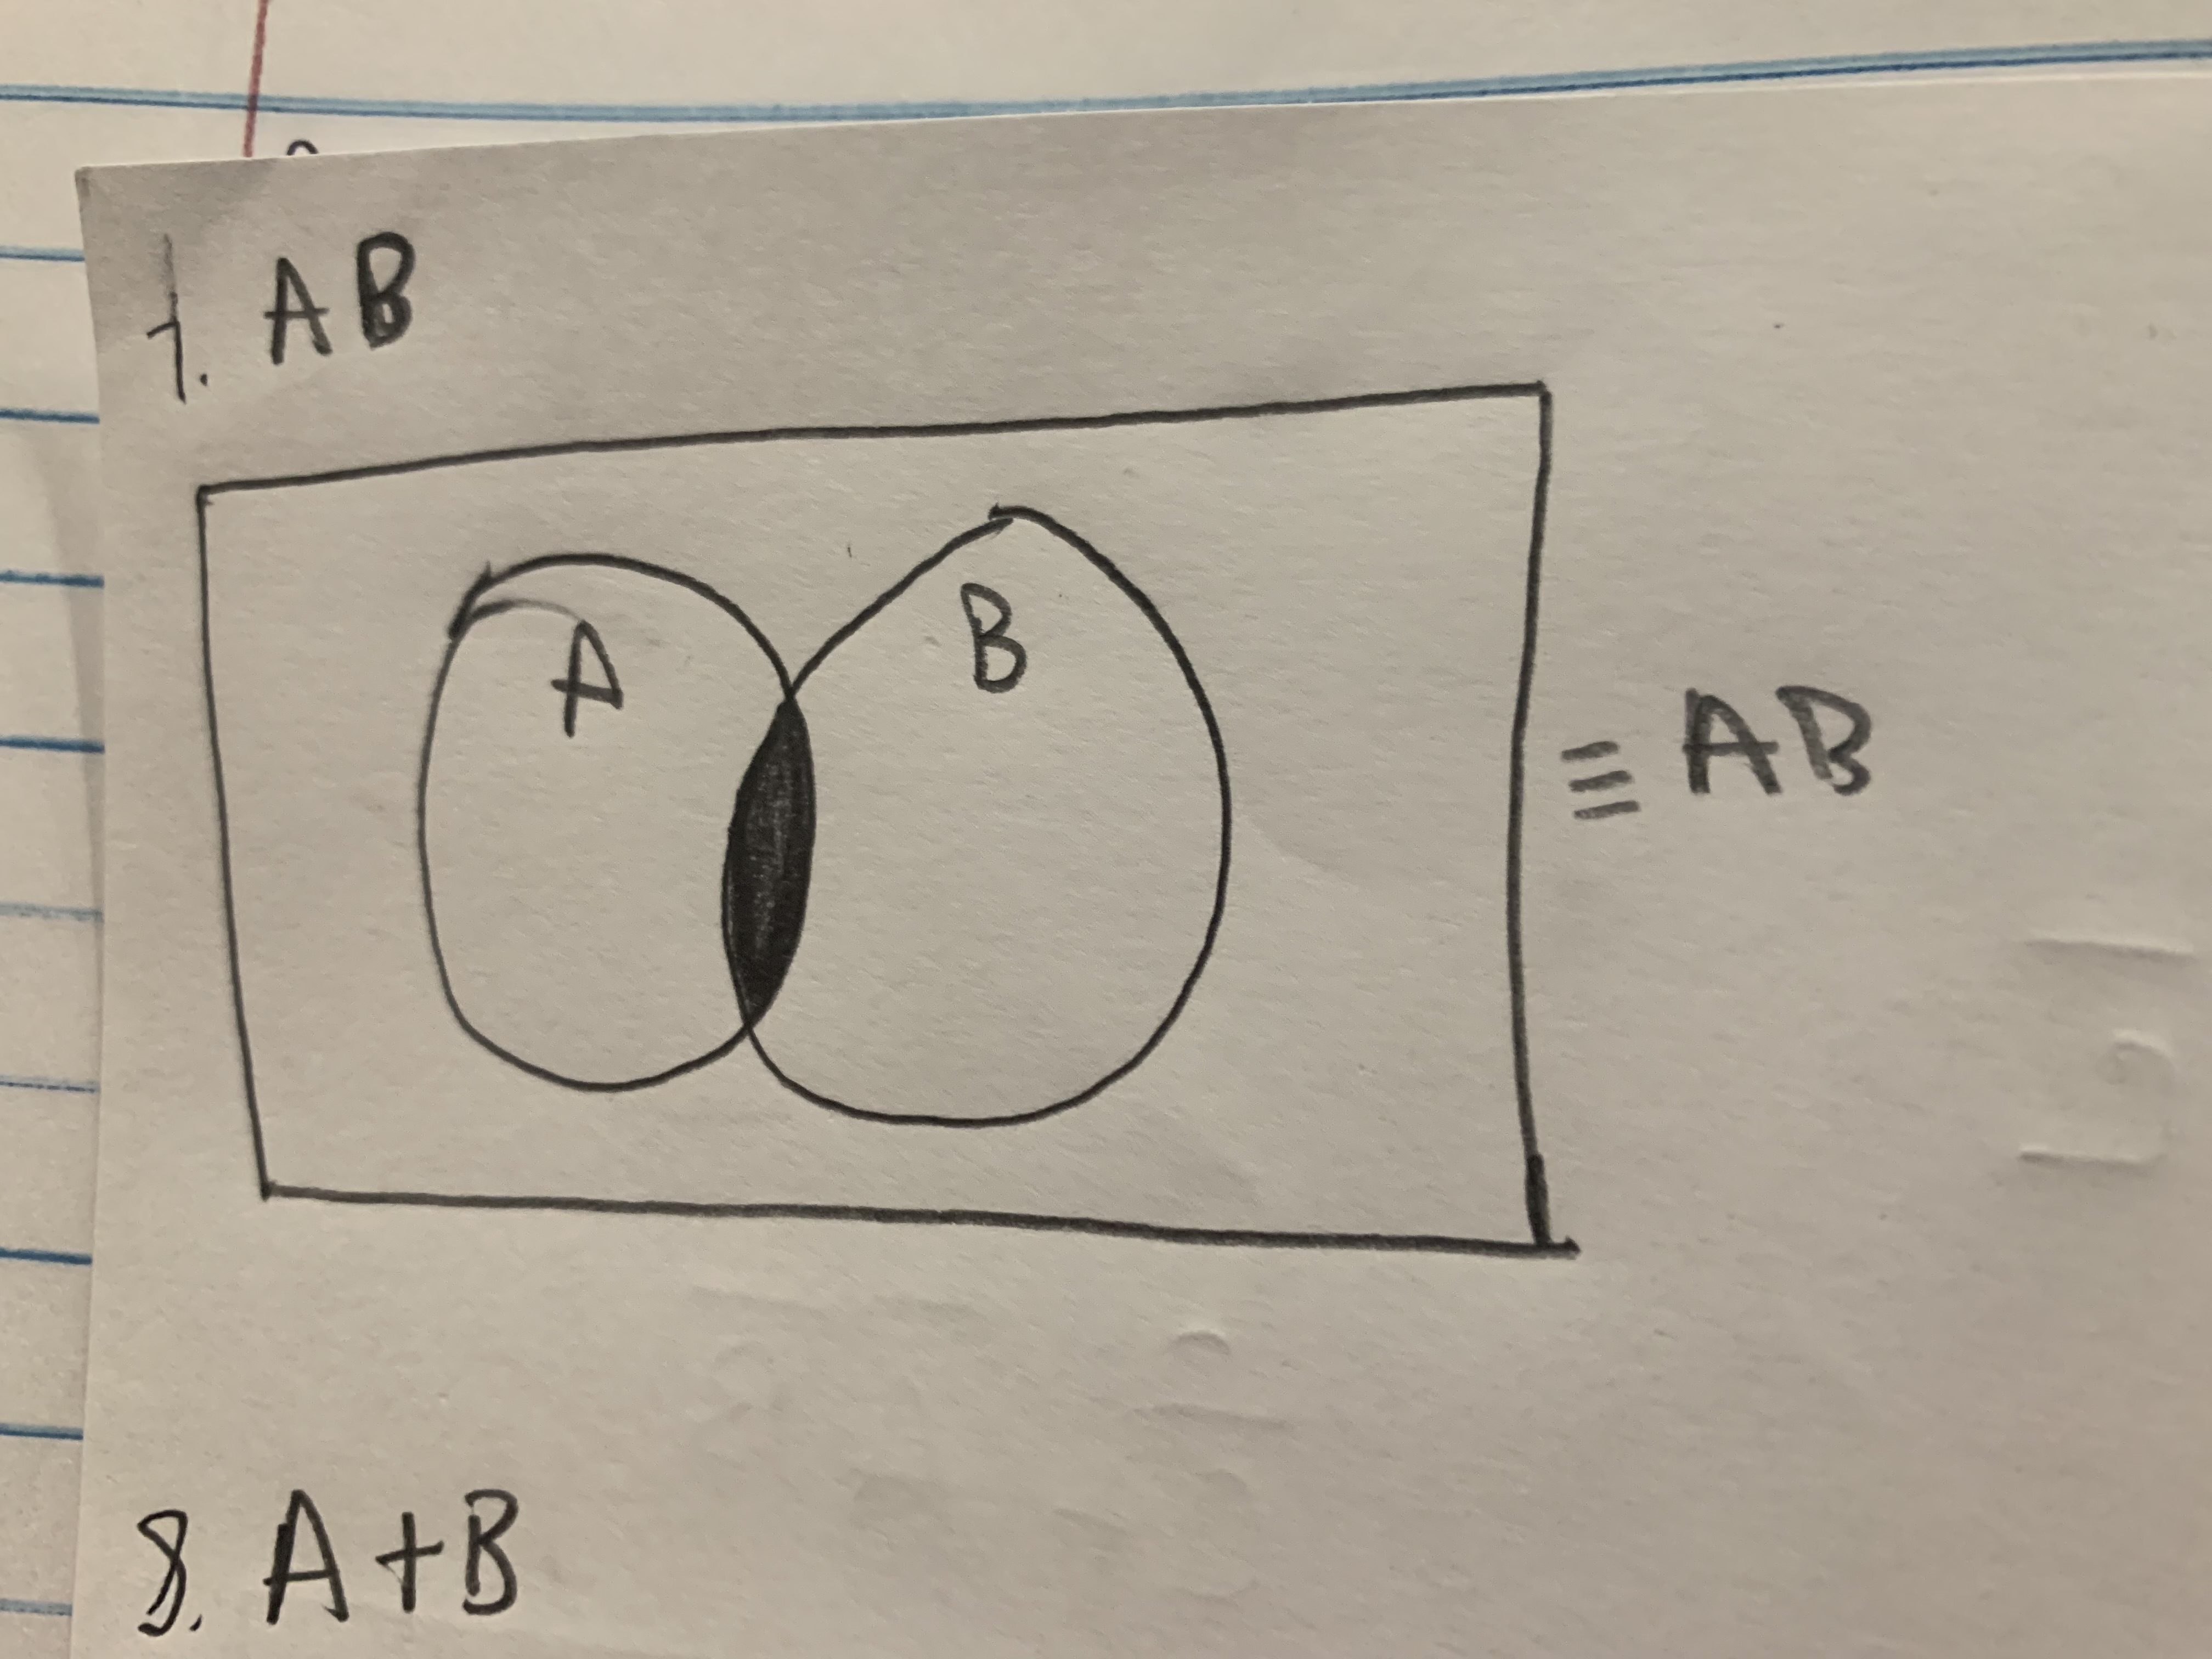 1. AB
A
B
≡ AB
8. A+B